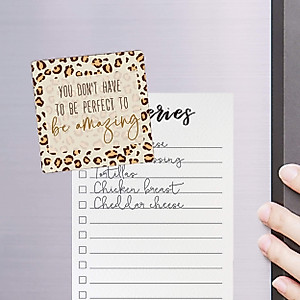 YOU DON'T HAVE
TO BE PERFECT TO
be amazing
Tortillas
Chicken breast
Cheddar cheese